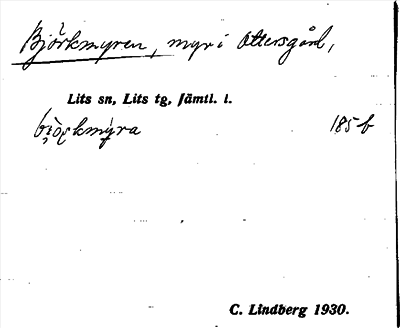 Björkmyren, myr i Ottersgård,
Lits sn, Lits tg, Jämtl. l.
185 b
C. Lindberg 1930.